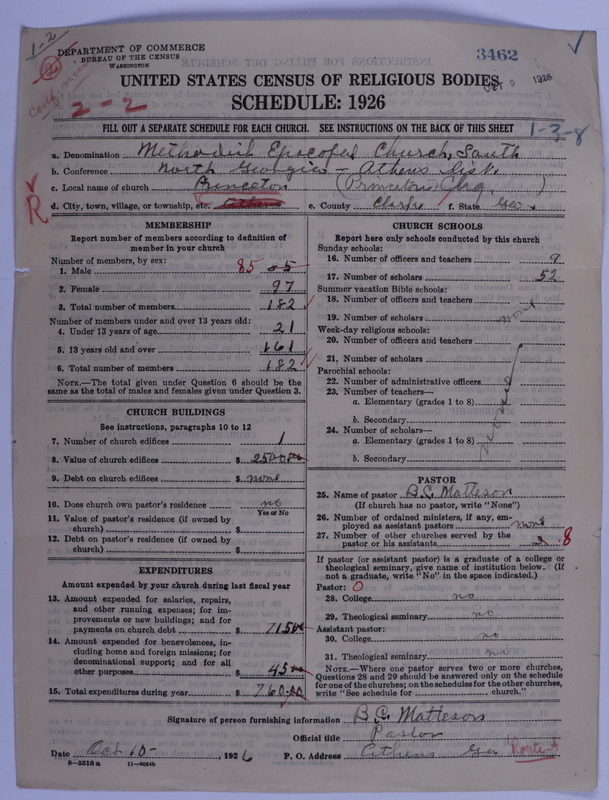 1-2
DEPARTMENT OF COMMERCE
BUREAU OF THE CENSUS
WASHINGTON
3462
UNITED STATES CENSUS OF RELIGIOUS BODIES
SCHEDULE: 1926
9 1926
2-2
FILL OUT A SEPARATE SCHEDULE FOR EACH CHURCH. SEE INSTRUCTIONS ON THE BACK OF THIS SHEET
1-3-8
a. Denomination Methodist Episcopal Church, South
b. Conference North Georgia - Athens Dist.
c. Local name of church Princeton (Princeton Chrg.)
d. City, town, village, or township, etc. Athens e. County Clarke f. State Geo.
R
MEMBERSHIP
Report number of members according to definition of member in your church
Number of members, by sex:
1. Male 85
2. Female 97
3. Total number of members 182
Number of members under and over 13 years old:
4. Under 13 years of age 21
5. 13 years old and over 161
6. Total number of members 182
NOTE.—The total given under Question 6 should be the same as the total of males and females given under Question 3.
CHURCH BUILDINGS
See instructions, paragraphs 10 to 12
7. Number of church edifices 1
8. Value of church edifices $ 2500.00
9. Debt on church edifices $ none
10. Does church own pastor's residence? no
Yes or No
11. Value of pastor's residence (if owned by church) $
12. Debt on pastor's residence (if owned by church) $
EXPENDITURES
Amount expended by your church during last fiscal year
13. Amount expended for salaries, repairs, and other running expenses; for improvements or new buildings; and for payments on church debt $ 715.00
14. Amount expended for benevolences, including home and foreign missions; for denominational support; and for all other purposes $ 45.00
15. Total expenditures during year $ 760.00
CHURCH SCHOOLS
Report here only schools conducted by this church
Sunday schools:
16. Number of officers and teachers 9
17. Number of scholars 52
Summer vacation Bible schools:
18. Number of officers and teachers
19. Number of scholars none
Week-day religious schools:
20. Number of officers and teachers
21. Number of scholars
Parochial schools:
22. Number of administrative officers
23. Number of teachers—
a. Elementary (grades 1 to 8)
b. Secondary
24. Number of scholars—
a. Elementary (grades 1 to 8)
b. Secondary
PASTOR
25. Name of pastor B.C. Matteson
(If church has no pastor, write "None")
26. Number of ordained ministers, if any, employed as assistant pastors none
27. Number of other churches served by the pastor or his assistants 8
If pastor (or assistant pastor) is a graduate of a college or theological seminary, give name of institution below. (If not a graduate, write "No" in the space indicated.)
Pastor: O
28. College no
29. Theological seminary no
Assistant pastor:
30. College no
31. Theological seminary no
NOTE.—Where one pastor serves two or more churches, Questions 28 and 29 should be answered only on the schedule for one of the churches; on the schedules for the other churches, write "See schedule for church."
Signature of person furnishing information B.C. Matteson
Official title Pastor
Date Oct 10-, 1926 P. O. Address Athens Ga Route A
8-5518 a